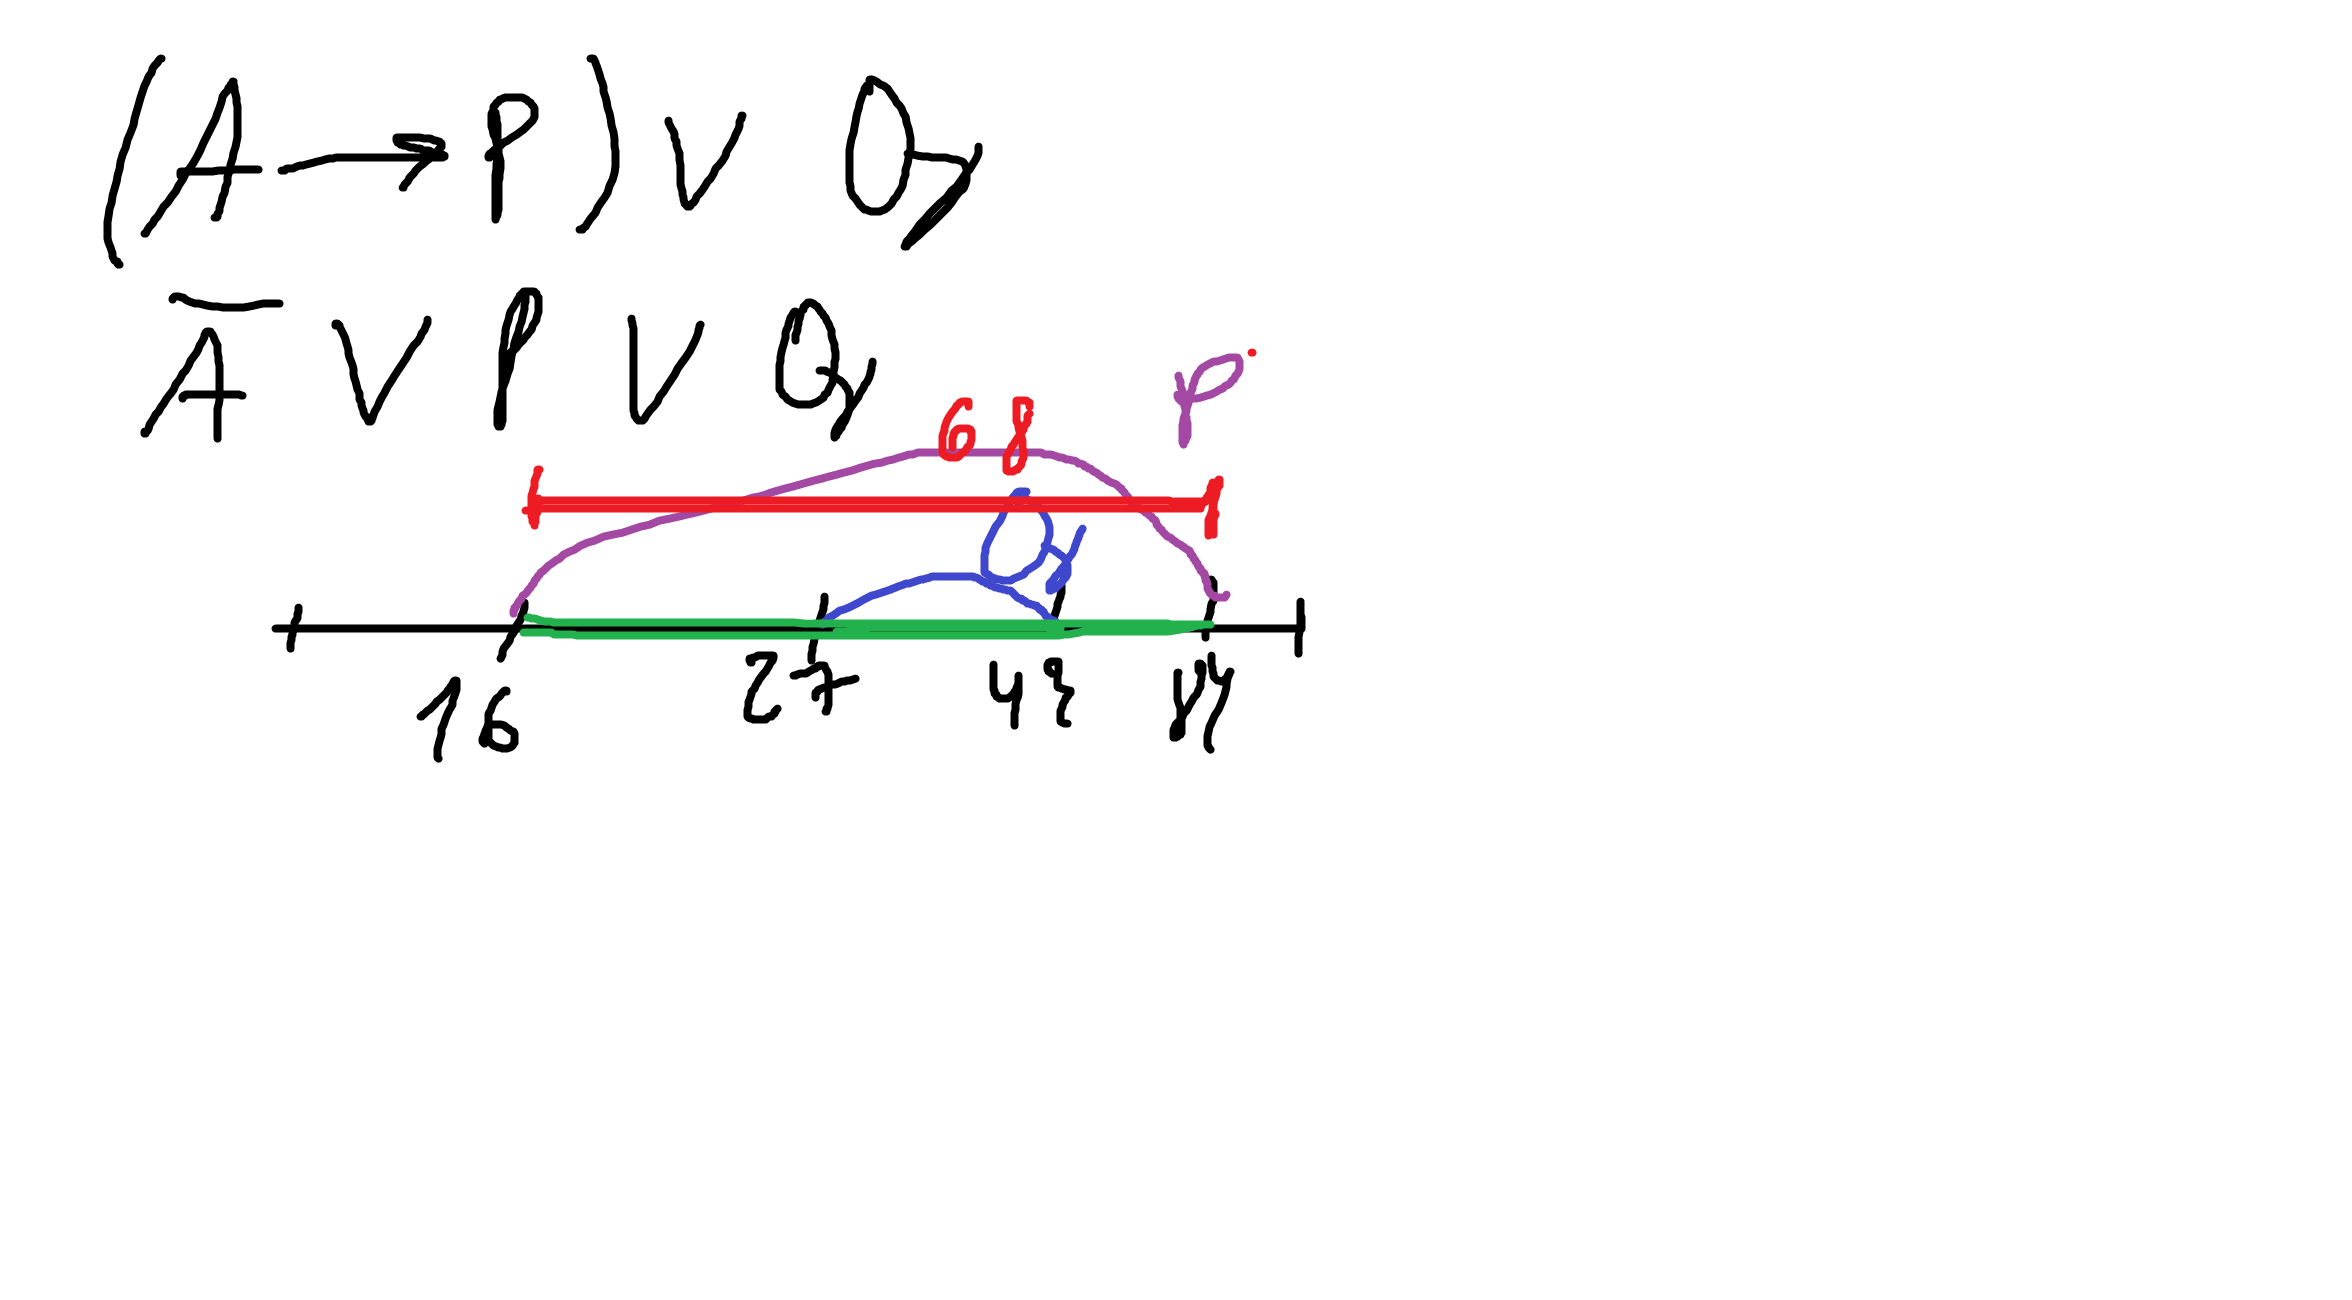 (A → P) ∨ Q
A̅ ∨ P ∨ Q
P
68
Q
16 27 49 84